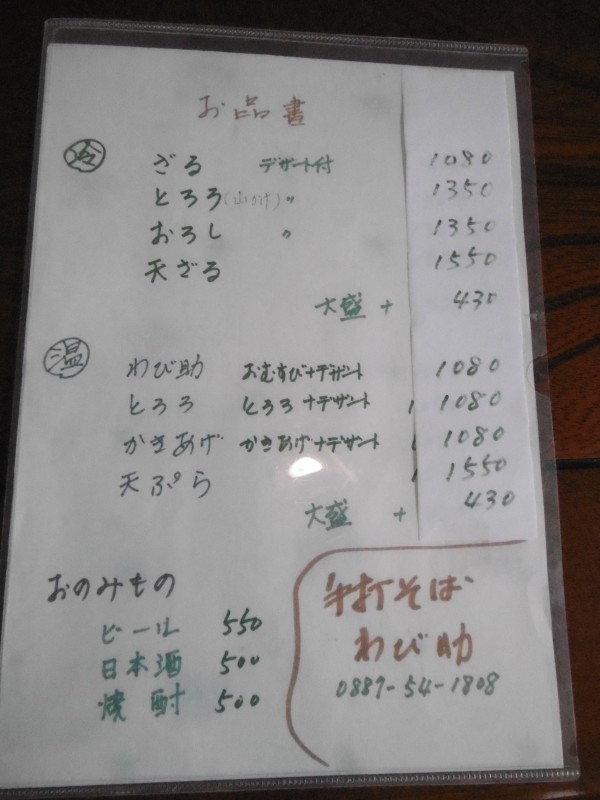 お品書
冷 ざる デザート付 1080
とろろ(山かけ) 〃 1350
おろし 〃 1350
天ざる 1550
大盛 + 430
温 わび助 おむすび+デザート 1080
とろろ とろろ+デザート 1080
かきあげ かきあげ+デザート 1080
天ぷら 1550
大盛 + 430
おのみもの
ビール 550
日本酒 500
焼酎 500
手打そば
わび助
0887-54-1808